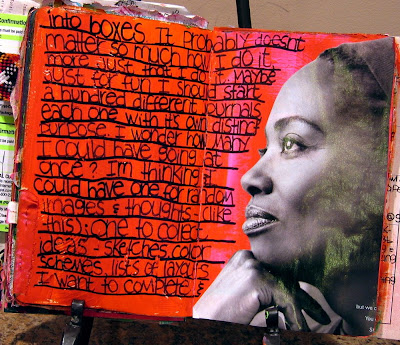 into boxes. It probably doesnt
matter so much how I do it
more just that I do it. Maybe
just for fun I should start
a hundred different journals
each one with its own distinct
purpose. I wonder how many
I could have going at
once? I'm thinking I
could have one for random
images & thoughts - like
this; one to collect
ideas - sketches, color
schemes, lists of layouts
I want to complete &
But we
You